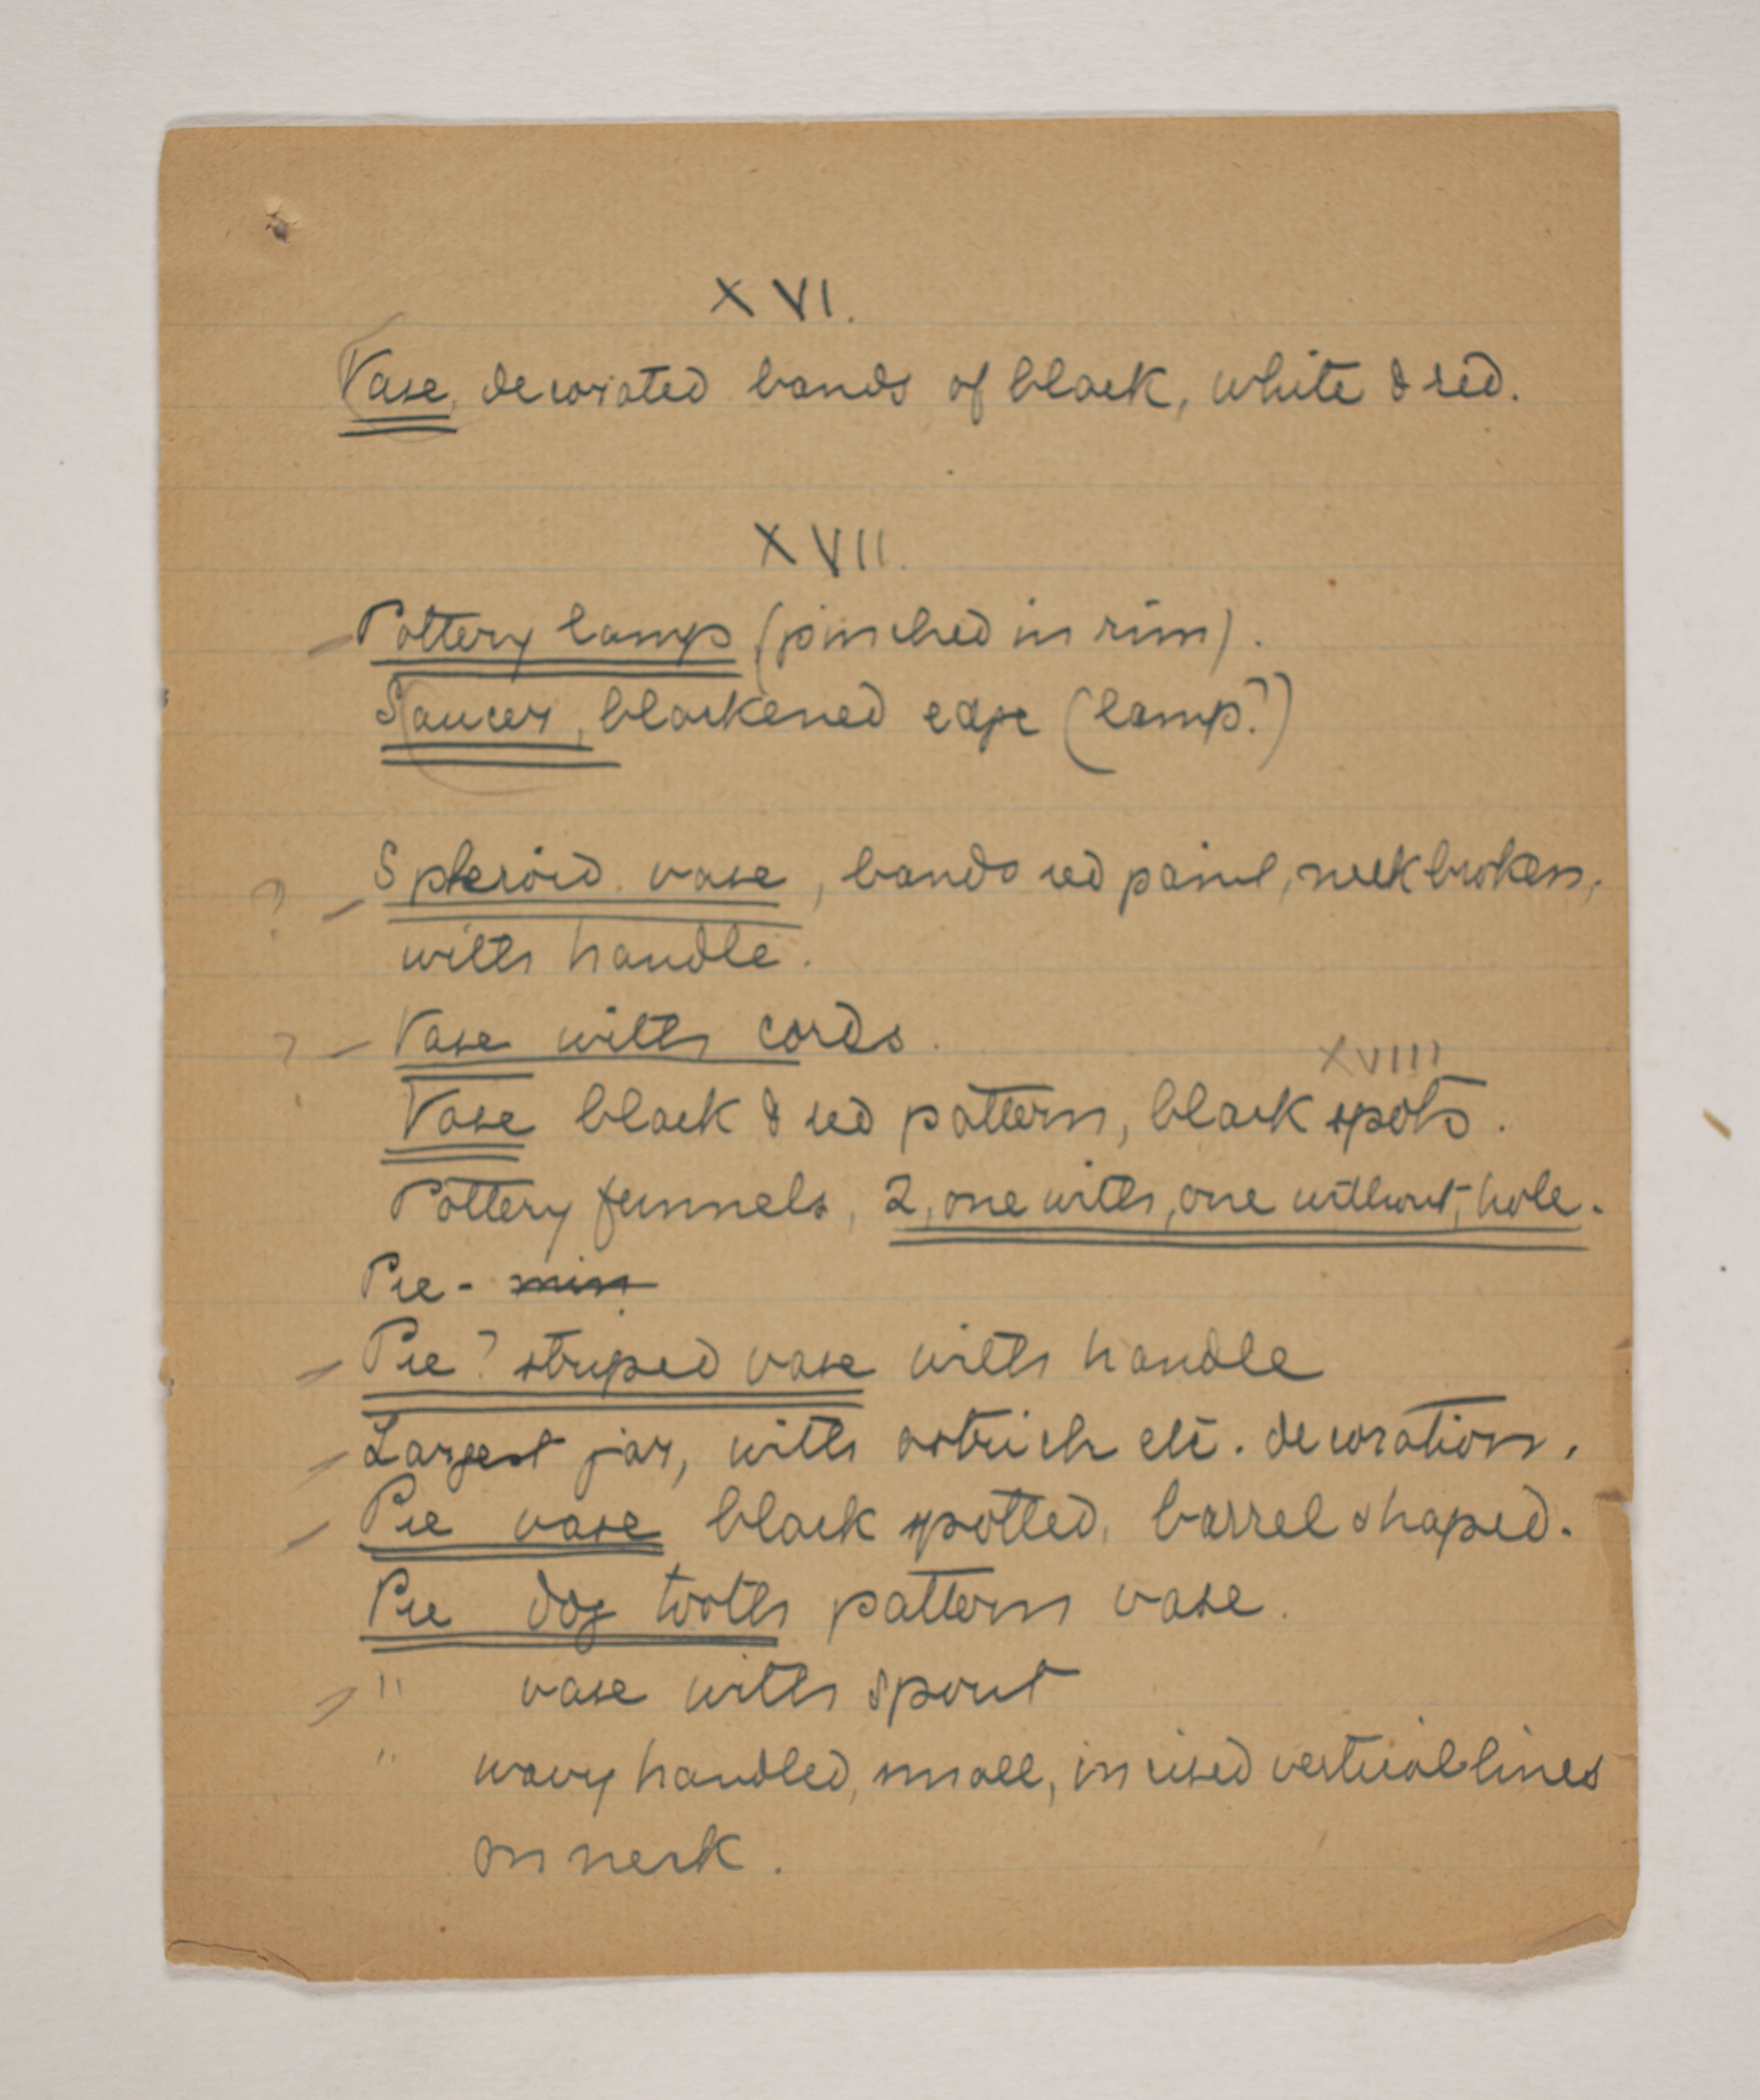 XVI.
Vase, decorated bands of black, white & red.
XVII.
Pottery lamp (pinched in rim).
Saucer, blackened edge (lamp?)
? Spheroid vase, bands red paint, neck broken,
with handle.
? Vase with cords.
XVIIII
Vase black & red pattern, black spots.
Pottery funnels, 2, one with, one without, hole.
Pre - min
Pre? striped vase with handle
Largest jar, with ostrich etc. decoration.
Pre vase black spotted, barrel shaped.
Pre dog tooth pattern vase.
" vase with spout
" wavy handled, small, incised vertical lines
on neck.